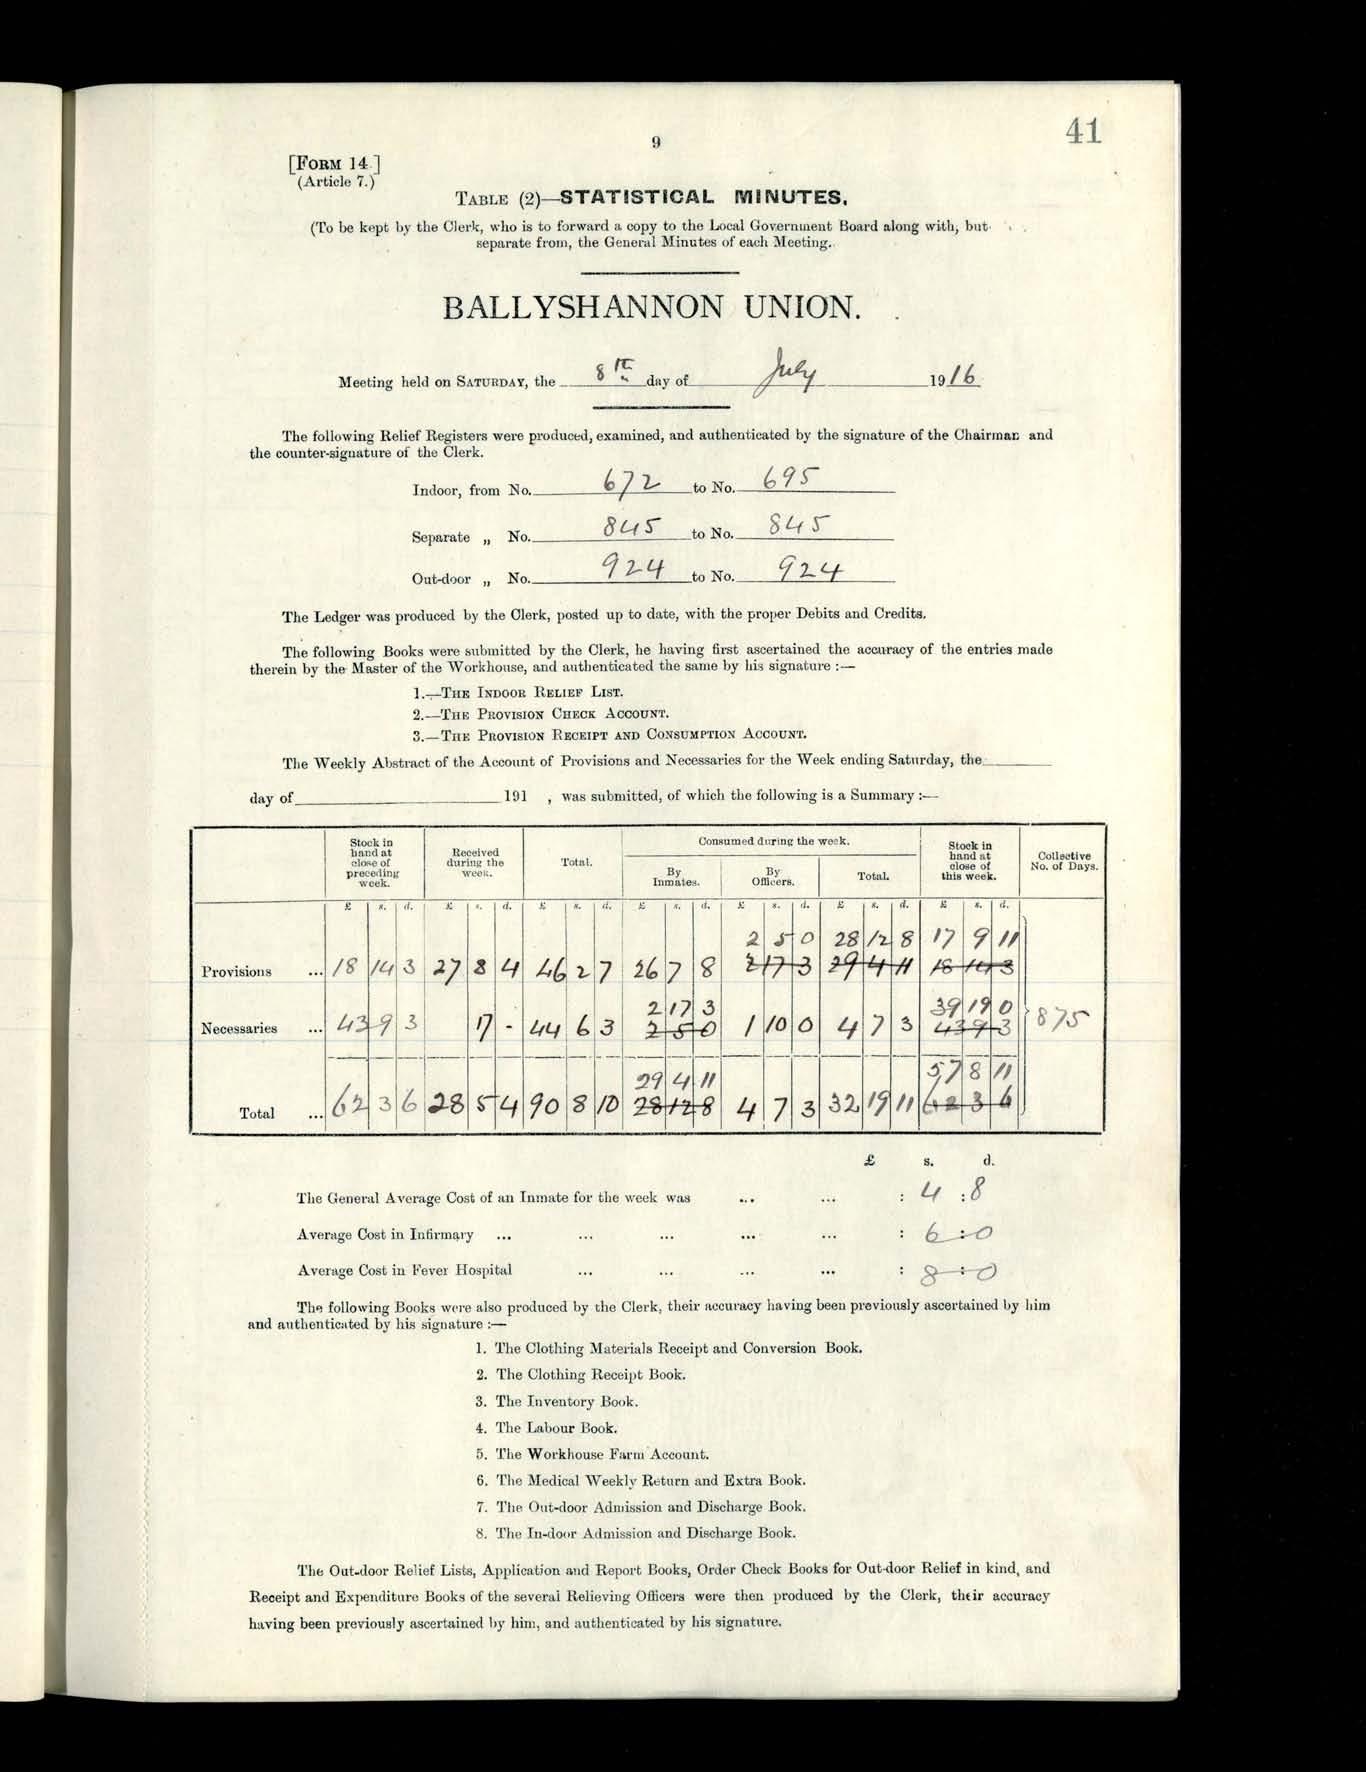 41
9
[FORM 14.]
(Article 7.)
TABLE (2)—STATISTICAL MINUTES.
(To be kept by the Clerk, who is to forward a copy to the Local Government Board along with, but
separate from, the General Minutes of each Meeting.
BALLYSHANNON UNION.
Meeting held on SATURDAY, the 8th day of July 1916
The following Relief Registers were produced, examined, and authenticated by the signature of the Chairman and
the counter-signature of the Clerk.
Indoor, from No. 672 to No. 695
Separate „ No. 845 to No. 845
Out-door „ No. 924 to No. 924
The Ledger was produced by the Clerk, posted up to date, with the proper Debits and Credits.
The following Books were submitted by the Clerk, he having first ascertained the accuracy of the entries made
therein by the Master of the Workhouse, and authenticated the same by his signature :—
1.—THE INDOOR RELIEF LIST.
2.—THE PROVISION CHECK ACCOUNT.
3.—THE PROVISION RECEIPT AND CONSUMPTION ACCOUNT.
The Weekly Abstract of the Account of Provisions and Necessaries for the Week ending Saturday, the
day of 191 , was submitted, of which the following is a Summary :—
Stock in hand at close of preceding week. Received during the week. Total. Consumed during the week. Stock in hand at close of this week. Collective No. of Days.
By Inmates. By Officers. Total.
£ s. d. £ s. d. £ s. d. £ s. d. £ s. d. £ s. d. £ s. d.
2 5 0 28 12 8 17 9 11
Provisions ... 18 14 3 27 8 4 46 2 7 26 7 8 2 17 3 29 4 11 18 14 3
2 17 3 39 19 0
Necessaries ... 43 9 3 17 - 44 6 3 2 5 0 1 10 0 4 7 3 43 9 3 875
29 4 11 57 8 11
Total ... 62 3 6 28 5 4 90 8 10 28 12 8 4 7 3 32 19 11 62 3 6
£ s. d.
The General Average Cost of an Inmate for the week was ... ... : 4 : 8
Average Cost in Infirmary ... ... ... ... ... : 6 : 0
Average Cost in Fever Hospital ... ... ... ... : 8 : 0
The following Books were also produced by the Clerk, their accuracy having been previously ascertained by him
and authenticated by his signature :—
1. The Clothing Materials Receipt and Conversion Book.
2. The Clothing Receipt Book.
3. The Inventory Book.
4. The Labour Book.
5. The Workhouse Farm Account.
6. The Medical Weekly Return and Extra Book.
7. The Out-door Admission and Discharge Book.
8. The In-door Admission and Discharge Book.
The Out-door Relief Lists, Application and Report Books, Order Check Books for Out-door Relief in kind, and
Receipt and Expenditure Books of the several Relieving Officers were then produced by the Clerk, their accuracy
having been previously ascertained by him, and authenticated by his signature.